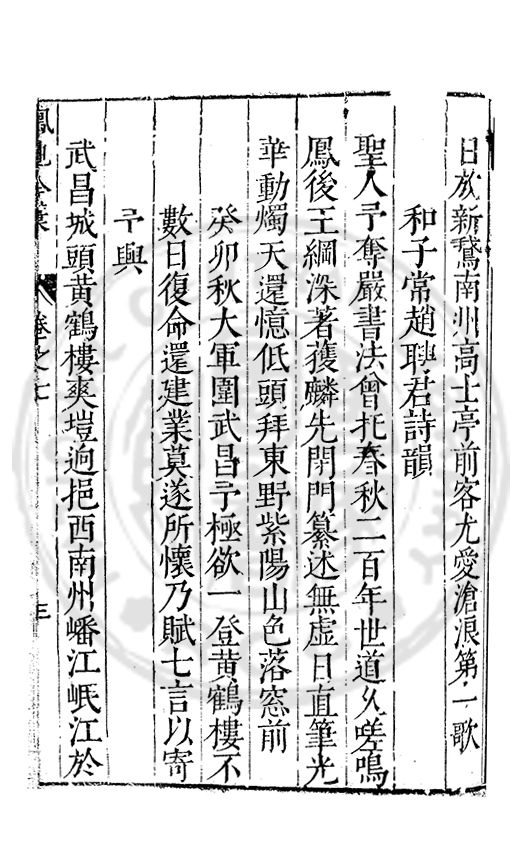 日放新鵞南州高士亭前客尤愛滄浪第一歌
和子常趙聘君詩韻
聖人予奪嚴書法曾托春秋二百年世道久嗟鳴
鳳後王綱深著獲麟先閉門纂述無虛日直筆光
華動燭天還憶低頭拜東野紫陽山色落窓前
癸卯秋大軍圍武昌予極欲一登黃鶴樓不
數日復命還建業莫遂所懷乃賦七言以寄
予興
武昌城頭黃鶴樓爽塏逈挹西南州嶓江岷江於
卷之七
三